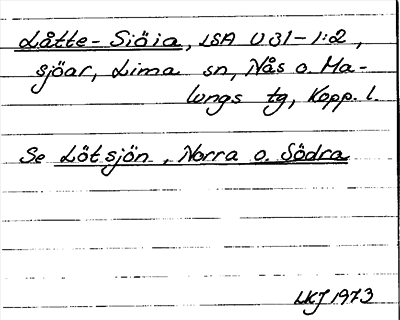 Låtte-Siöia, LSA U 31-1:2,
sjöar, Lima sn, Nås o. Ma-
lungs tg, Kopp. l.
Se Lötsjön, Norra o. Södra
LKJ 1973